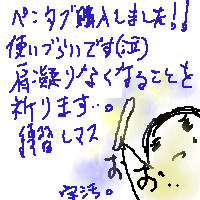 ペンタブ購入しました!!
使いづらいです(泣)
肩凝りなくなることを
祈ります…。
練習しマス
おお…